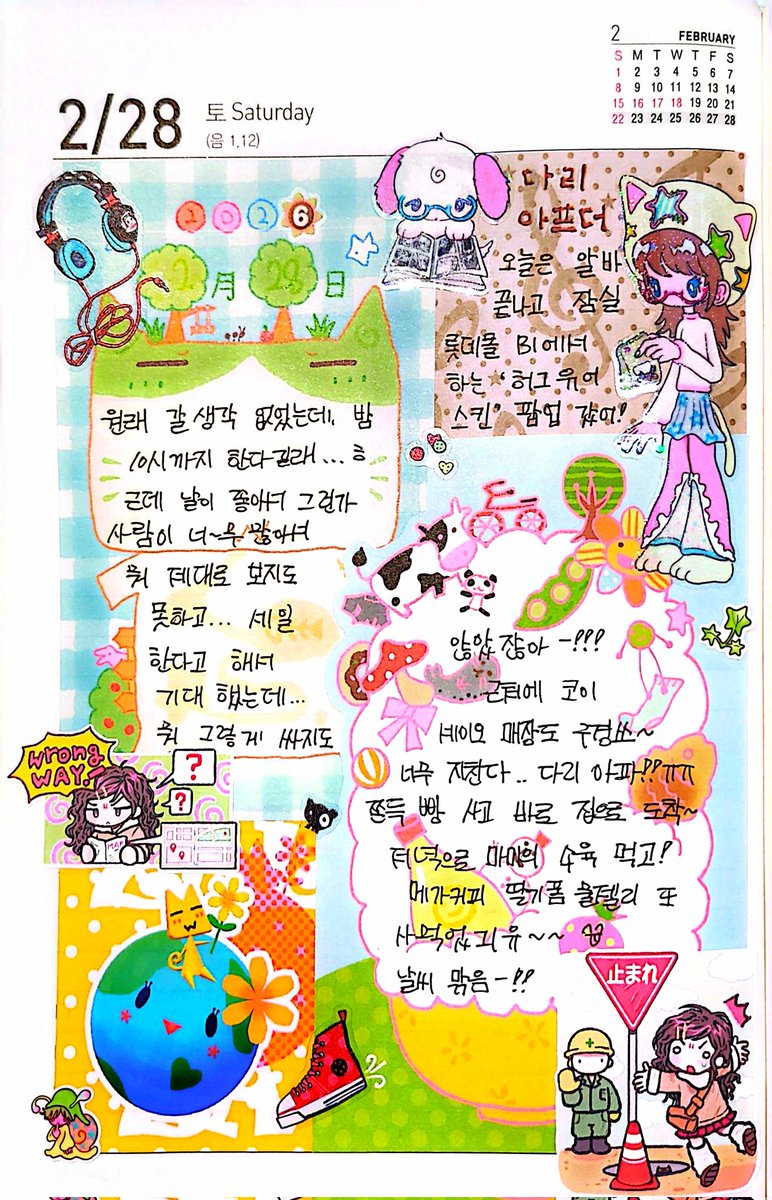 2 FEBRUARY
S M T W T F S
1 2 3 4 5 6 7
8 9 10 11 12 13 14
15 16 17 18 19 20 21
22 23 24 25 26 27 28
2/28 토 Saturday
(음 1.12)
2026
2月 28日
다리
아프더
오늘은 알바
끝나고 잠실
롯데몰 B1에서
하는 '허그유어
스킨" 팝업 갔어!
원래 갈 생각 없었는데, 밤
10시까지 한다길래...ㅎ
근데 날이 좋아서 그런가
사람이 너~무 많아서
뭐 제대로 보지도
못하고... 세일
한다고 해서
기대 했는데...
뭐 그렇게 싸지도
않았잖아-!!!
근처에 코이
세이오 매장도 구경쓰~
너무 지친다.. 다리 아파!!ㅠㅠ
쫀득 빵 사고 바로 집으로 도착~
저녁으로 마미의 수육 먹고!
메가커피 딸기폼 출텔리 또
사먹었긔유~~
날씨 맑음-!!
wrong
WAY!
?
?
MAP
止まれ